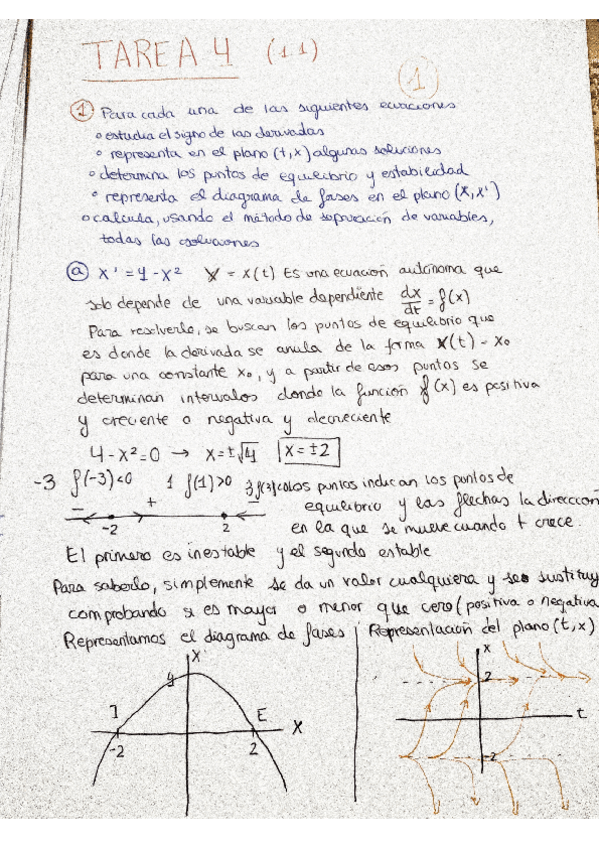 TAREA 4 (1.1)
1
① Para cada una de las siguientes ecuaciones
° estudia el signo de las derivadas
° representa en el plano (t,x) algunas soluciones
° determina los puntos de equilibrio y estabilidad
° representa el diagrama de fases en el plano (x,x')
° calcula, usando el método de separación de variables,
todas las soluciones
ⓐ x' = 4 - x² x = x(t) Es una ecuación autónoma que
solo depende de una variable dependiente dx/dt = f(x)
Para resolverlo, se buscan los puntos de equilibrio que
es donde la derivada se anula de la forma x(t) = x₀
para una constante x₀, y a partir de esos puntos se
determinan intervalos donde la función f(x) es positiva
y creciente o negativa y decreciente
4 - x² = 0 → x = ±√4 x = ±2
-3 f(-3)<0 1 f(1)>0 3 f(3)<0 Los puntos indican los puntos de
equilibrio y las flechas la dirección
- + -
-2 2
en la que se mueve cuando t crece.
El primero es inestable y el segundo estable
Para saberlo, simplemente se da un valor cualquiera y se sustituy
comprobando si es mayor o menor que cero (positiva o negativa
Representamos el diagrama de fases Representación del plano (t,x)
x'
4
I E
-2 2 X
x
2
t
-2